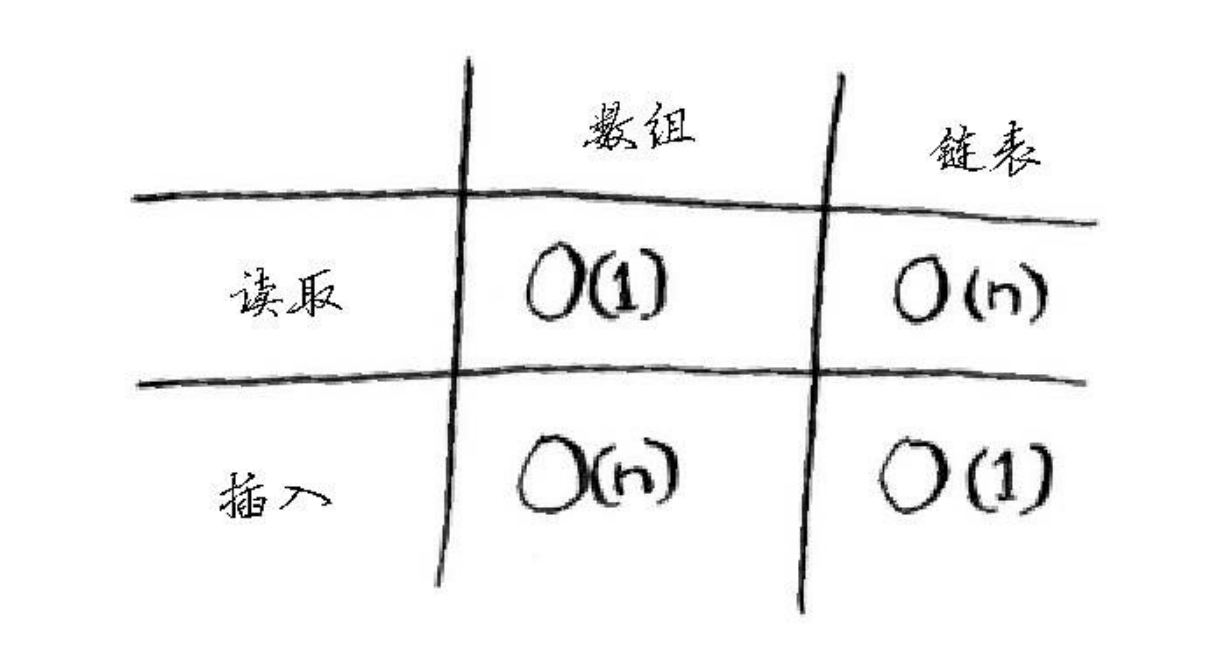 数组 链表
读取 O(1) O(n)
插入 O(n) O(1)